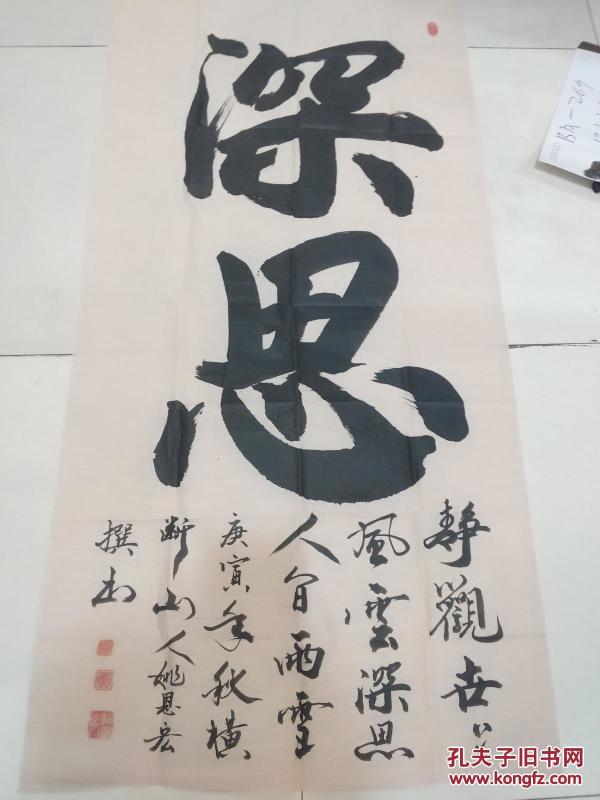 深思
靜觀世上
風雲深思
人間雨雪
庚寅年秋橫
斷山人姚思宏
撰書
BA-269
孔夫子旧书网
www.kongfz.com